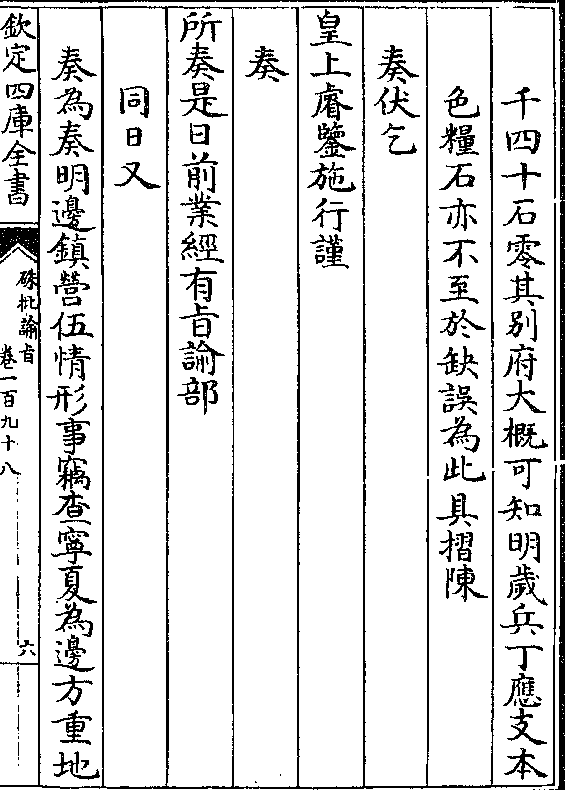 千四十石零其别府大概可知明歲兵丁應支本
色糧石亦不至於缺誤為此具摺陳
奏伏乞
皇上睿鑒施行謹
奏
所奏是日前業經有㫖諭部
同日又
奏為奏明邊鎮營伍情形事竊查寧夏為邊方重地
欽定四庫全書
硃批諭㫖
卷一百九十八
六